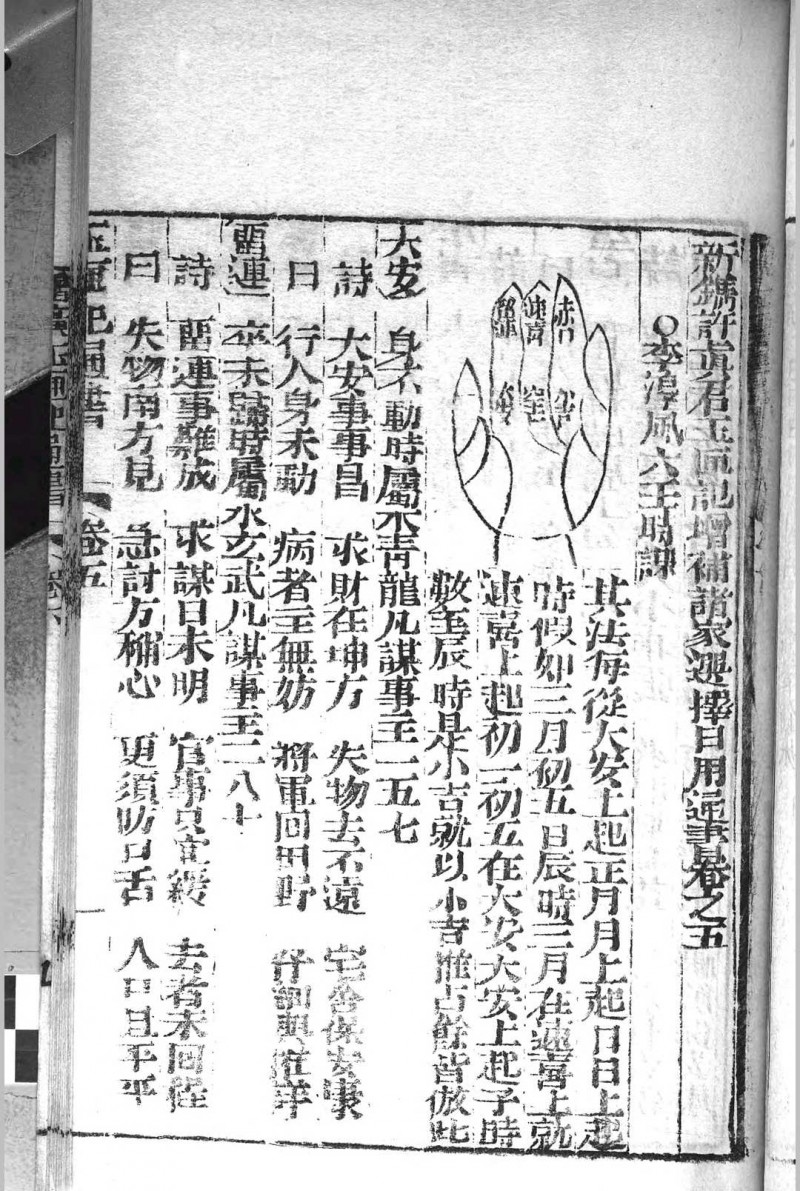 新鐫許真君玉匣記增補諸家選擇日用通書卷之五
○李淳風六壬時課
赤口
速喜
留連
小吉
空亡
大安
其法每從大安上起正月月上起日日上起
時假如三月初五日辰時三月在速喜上就
速喜上起初一初五在大安大安上起子時
數至辰時是小吉就以小吉推占餘皆倣此
大安 身不動時屬木青龍凡謀事主一五七
詩 大安事事昌 求財在坤方 失物去不遠 宅舍保安康
曰 行人身未動 病者主無妨 將軍回田野 仔細與推詳
留連 卒未歸時屬水玄武凡謀事主二八十
詩 留連事難成 求謀日未明 官事只宜緩 去者未回程
曰 失物南方見 急討方稱心 更須防口舌 人口且平平
玉匣記通書 卷五